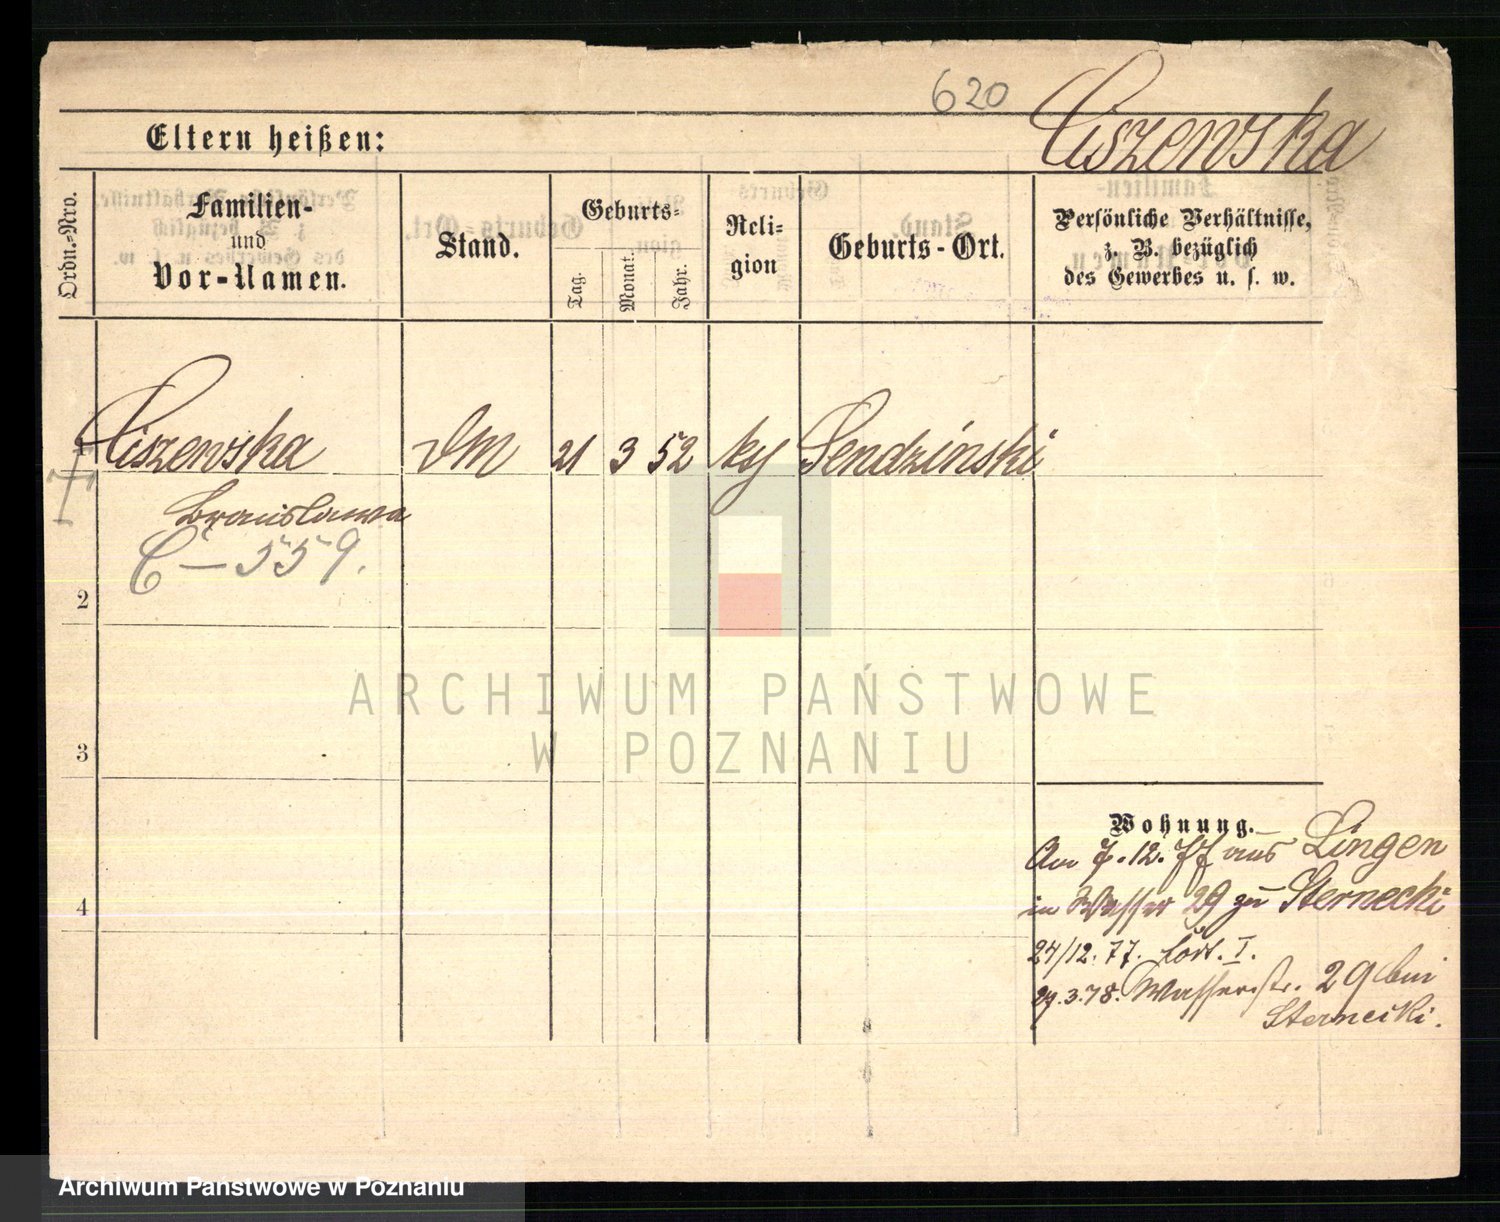 620 Ciszewska
Eltern heißen:
Ordn.-Nro.
Familien-
und
Vor-Namen.
Stand.
Geburts-
Tag.
Monat.
Jahr.
Reli-
gion
Geburts-Ort.
Persönliche Verhältnisse,
z. B. bezüglich
des Gewerbes u. s. w.
1 Ciszewska DM 21 3 52 Sendzinski
Bronislawa
C – 559.
2
3
4
Wohnung.
Am 7.12.77 aus Lingen
in Wasser 29 zu Sternecki
24/12.77. I.
29.3.78. Wasserstr. 29 bei
Sternecki.
ARCHIWUM PAŃSTWOWE
W POZNANIU
Archiwum Państwowe w Poznaniu